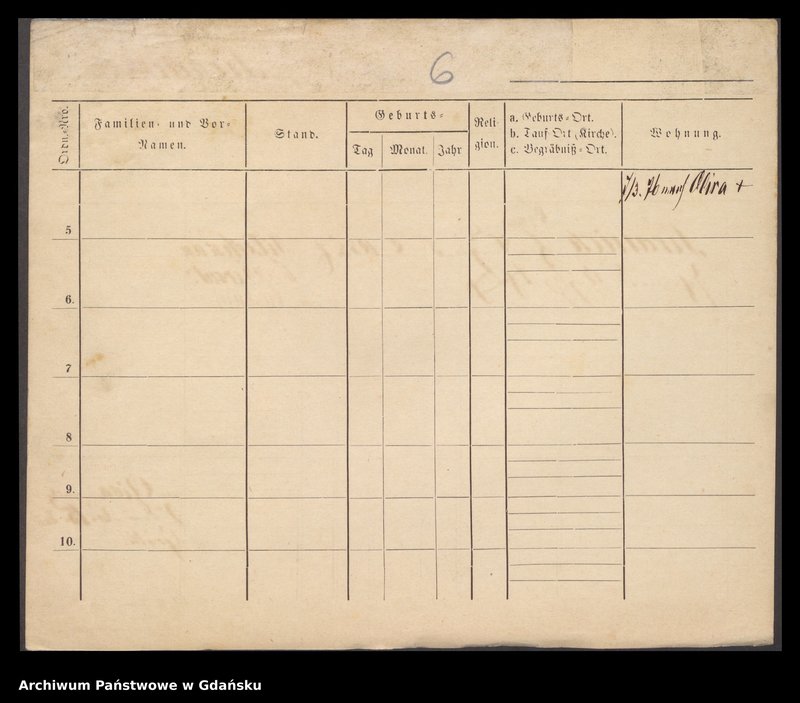 6
Ordn.-Nro.
Familien- und Vor-
Namen.
Stand.
Geburts-
Tag
Monat.
Jahr
Reli-
gion.
a. Geburts-Ort.
b. Tauf-Ort (Kirche).
c. Begräbniß-Ort.
Wohnung.
Oliva +
5
6.
7
8
9.
10.
Archiwum Państwowe w Gdańsku